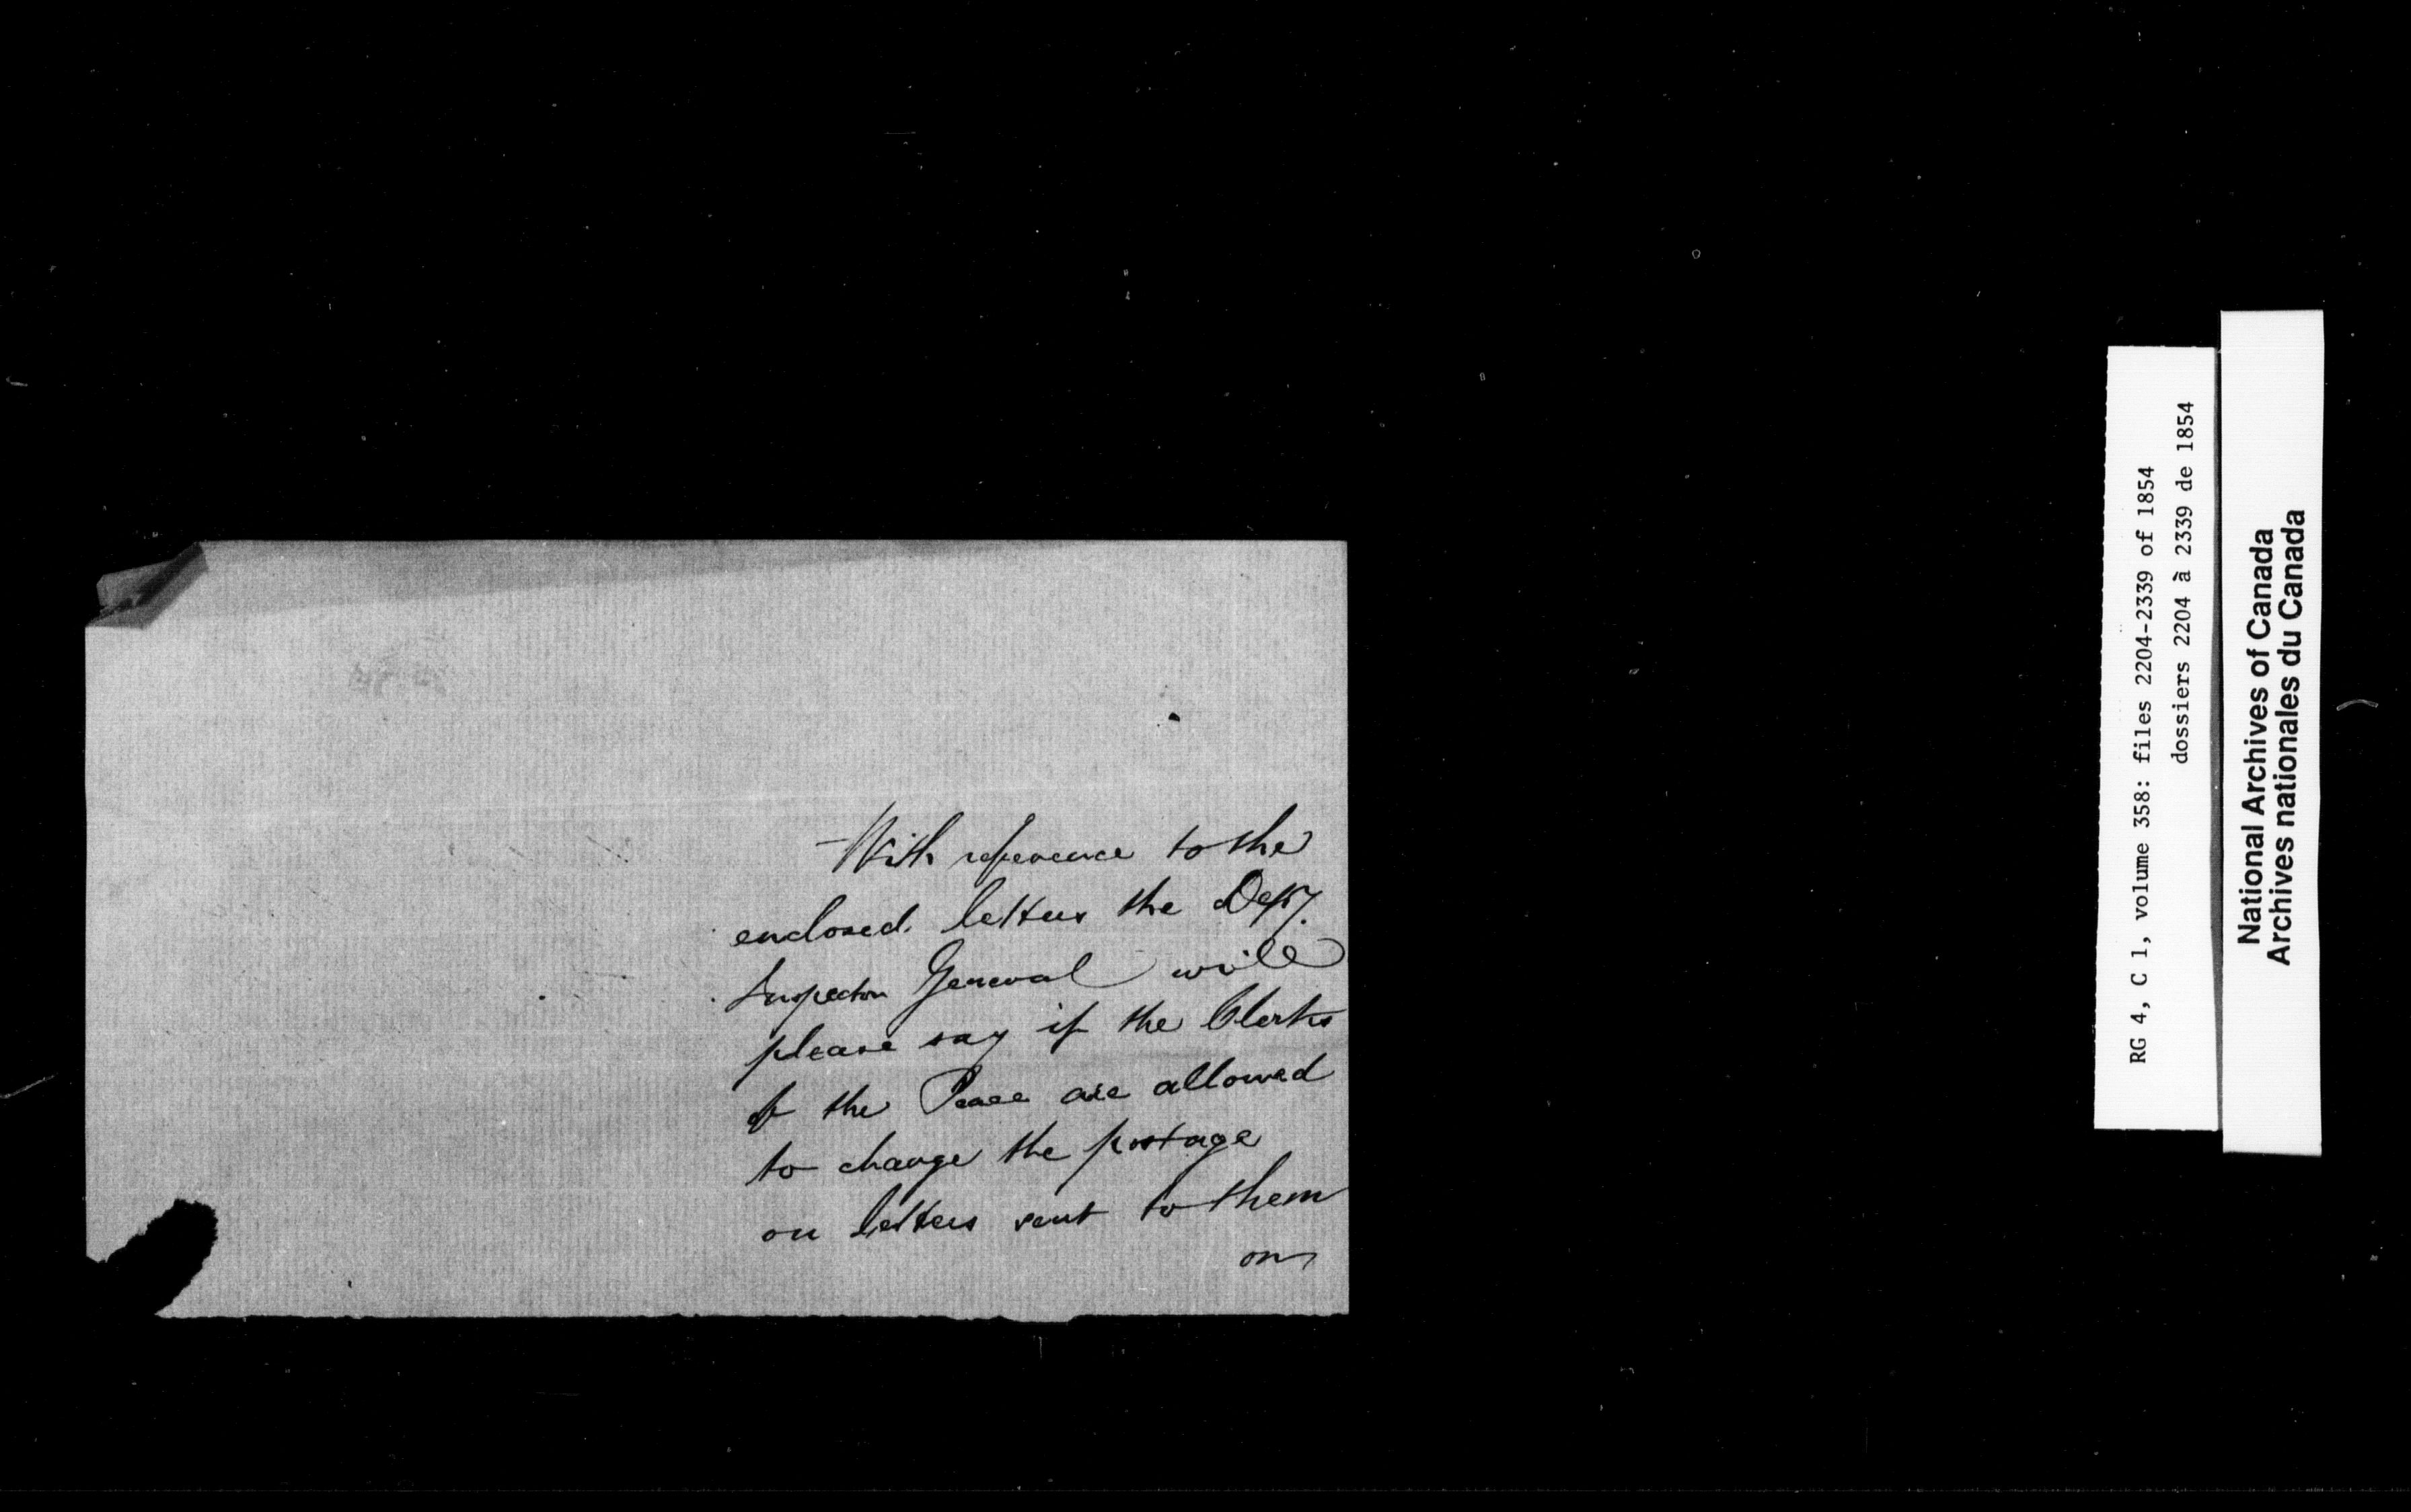 With reference to the
enclosed letters the Depy.
Inspector General will
please say if the Clerks
of the Peace are allowed
to charge the postage
on letters sent to them
on
RG 4, C 1, volume 358: files 2204-2339 of 1854
dossiers 2204 à 2339 de 1854
National Archives of Canada
Archives nationales du Canada